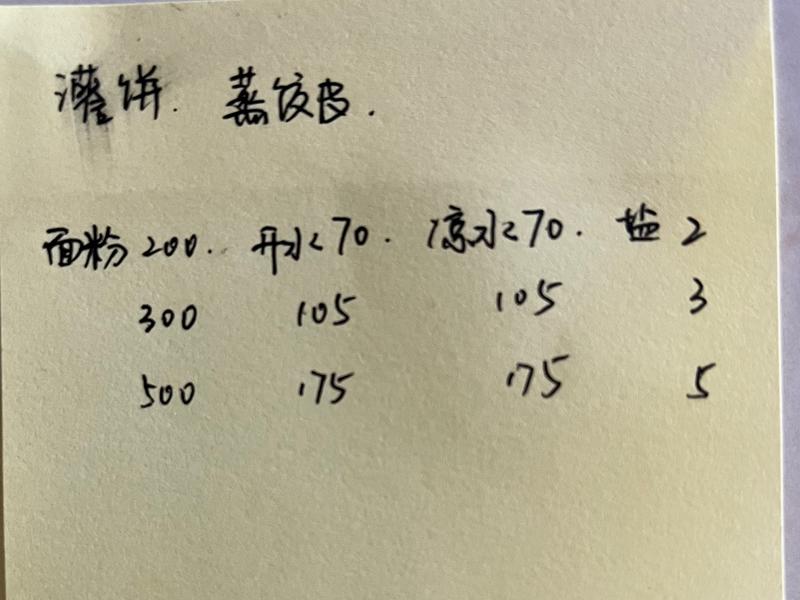 灌饼. 蒸饺皮.
面粉 200. 开水 70. 凉水 70. 盐 2
300 105 105 3
500 175 175 5